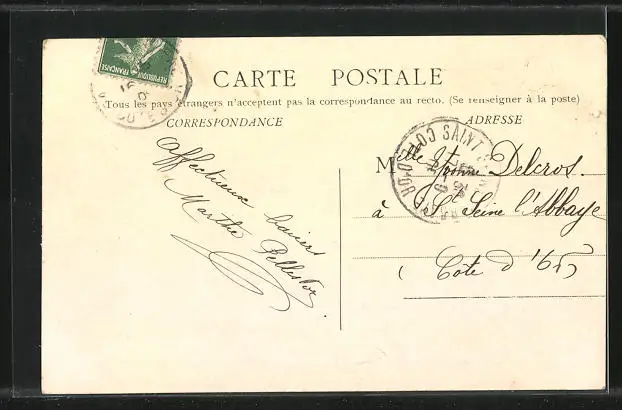 RÉPUBLIQUE FRANÇAISE
CARTE POSTALE
Tous les pays étrangers n'acceptent pas la correspondance au recto. (Se renseigner à la poste)
CORRESPONDANCE
ADRESSE
Affectueux baisers
Marthe
Melle Yvonne Delcros.
à St Seine l'Abbaye
(Côte d'Or)
CÔTE-D'OR
SAINT